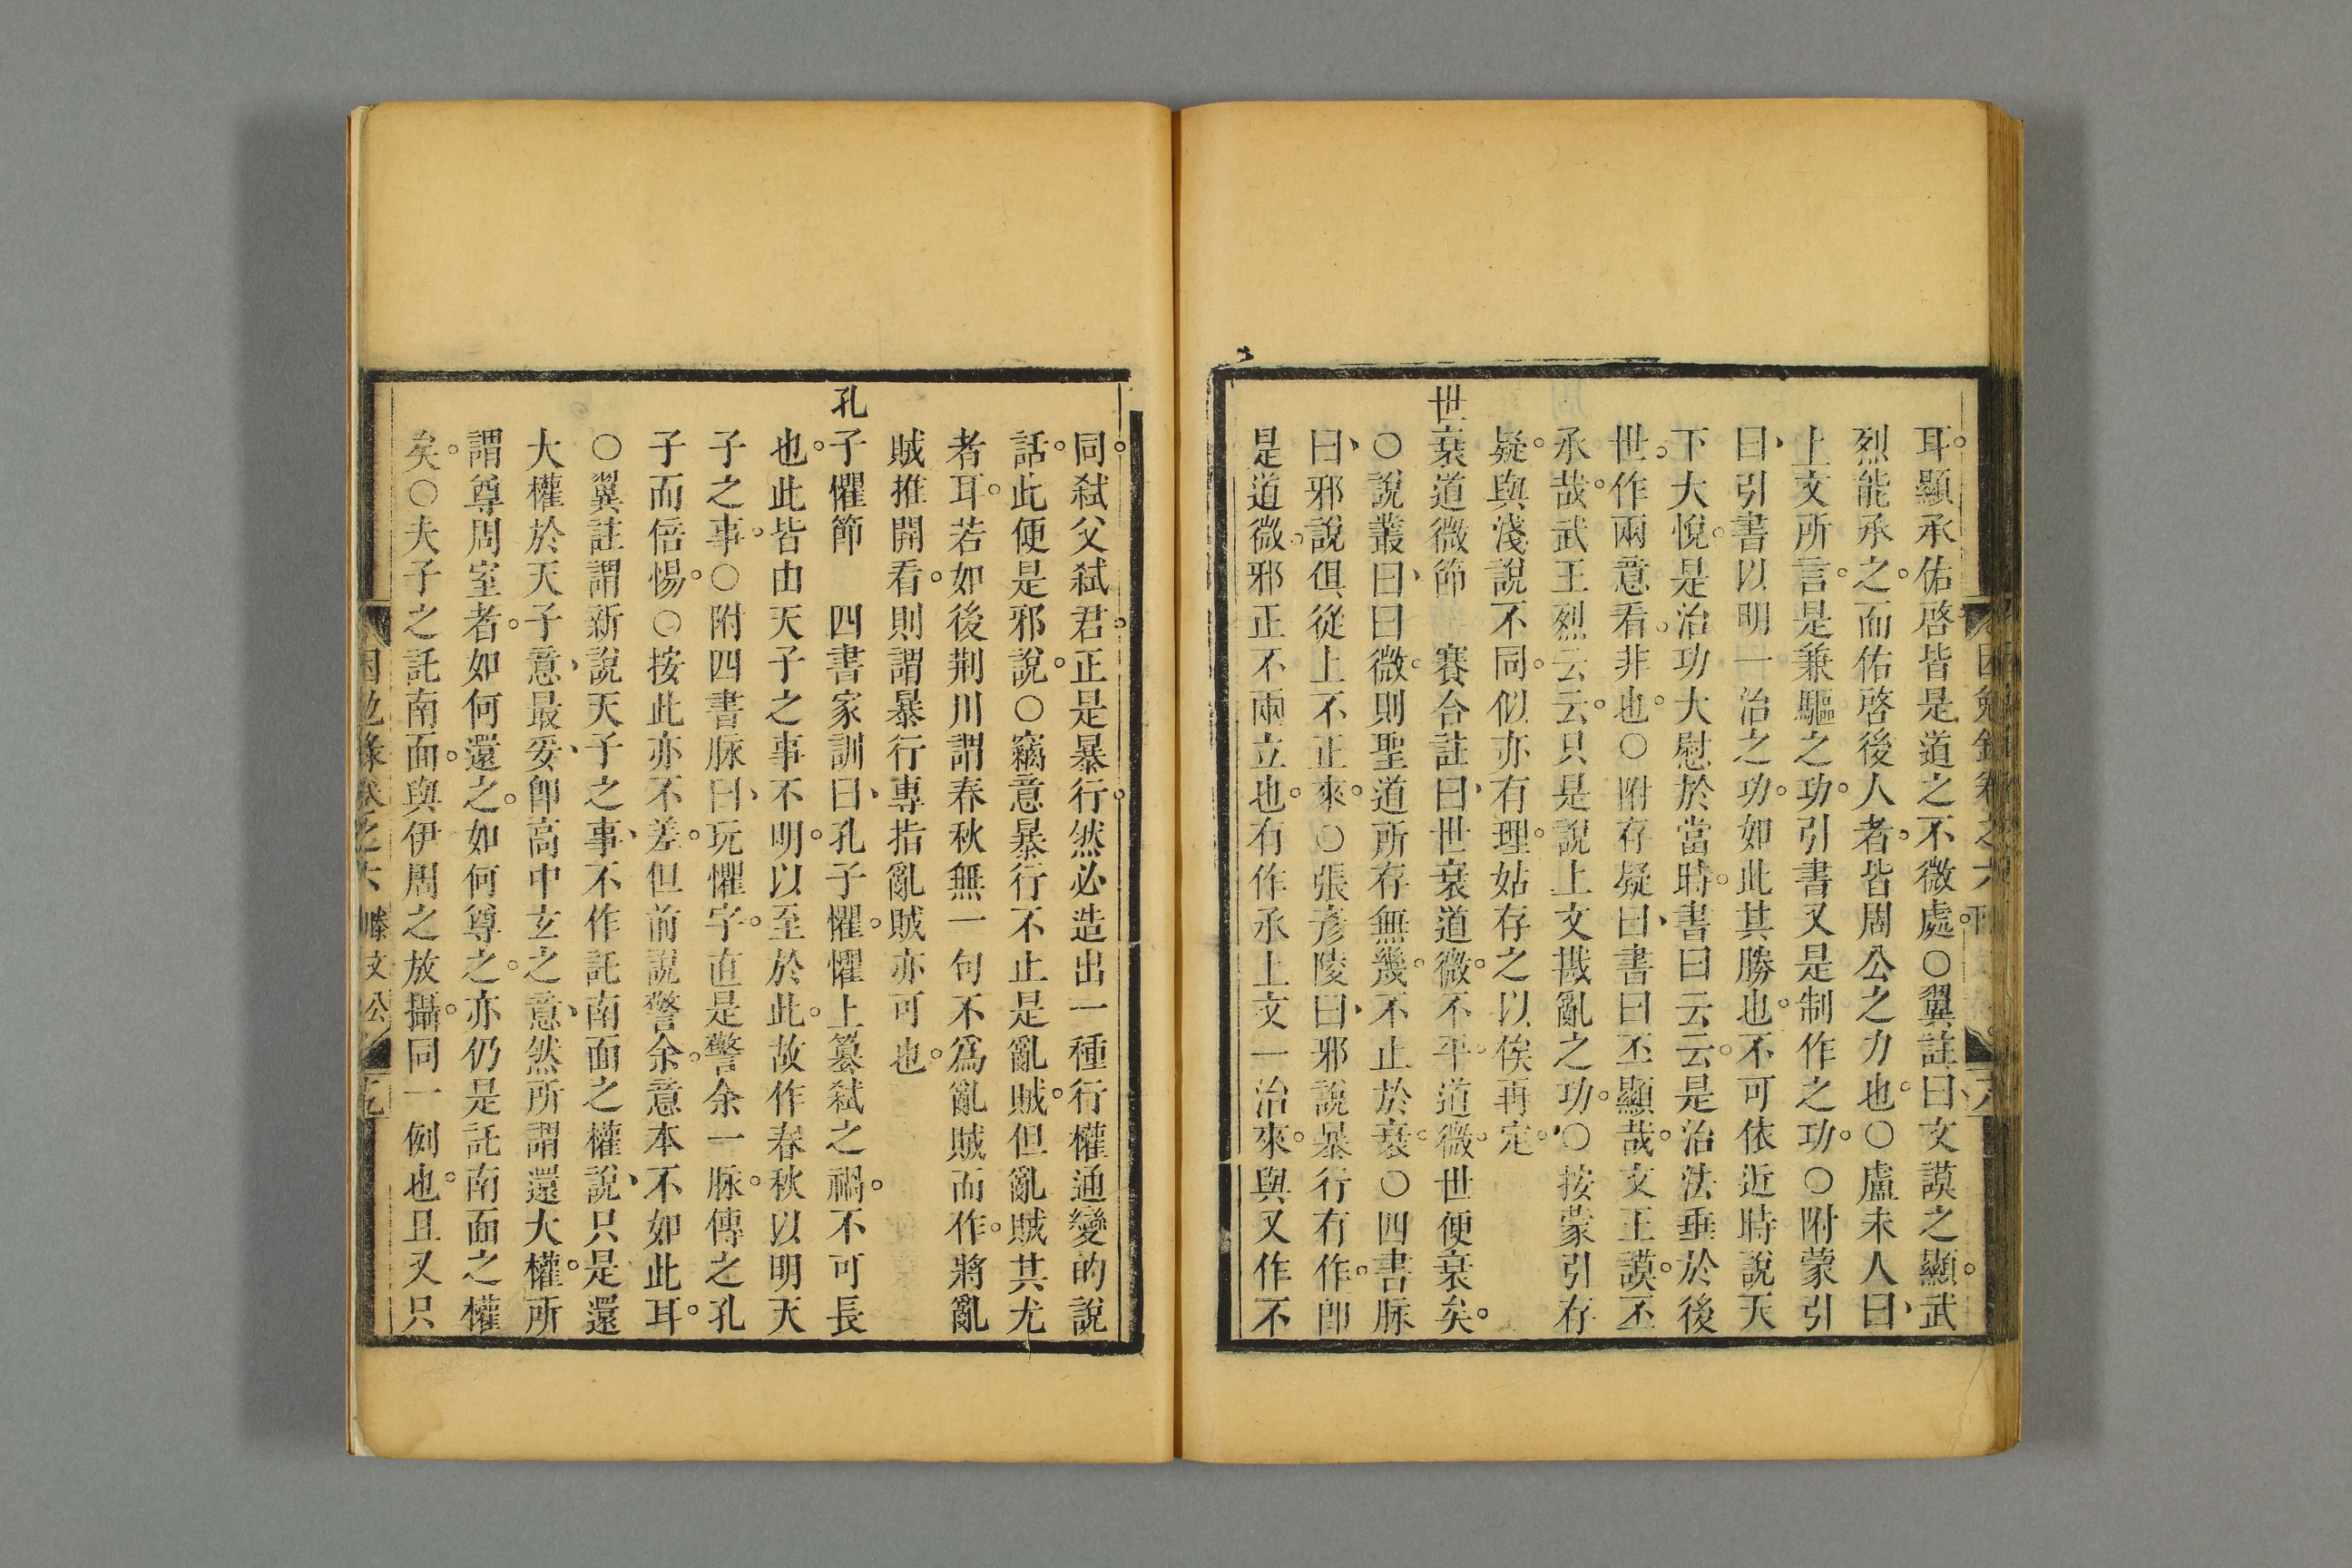 耳。顯承佑啓皆是道之不微處。○翼註曰、文謨之顯。武
烈能承之。而佑啓後人者。皆周公之力也。○盧未人曰、
上文所言。是兼驅之功。引書又是制作之功。○附蒙引
曰、引書以明一治之功。如此其勝也。不可依近時說天
下大悅。是治功大慰於當時。書曰云云。是治法垂於後
世。作兩意看。非也。○附存疑曰、書曰丕顯哉。文王謨。丕
承哉。武王烈云云。只是說上文撥亂之功。○按蒙引存
疑。與淺說不同。似亦有理。姑存之以俟再定。
世衰道微節　賽合註曰、世衰道微。不平。道微。世便衰矣。
○說叢曰、曰微。則聖道所存無幾。不止於衰。○四書脉
曰、邪說俱從上不正來。○張彥陵曰、邪說暴行有作。卽
是道微。邪正不兩立也。有作承上文一治來。與又作不
同。弑父弑君。正是暴行。然必造出一種行權通變的說
話。此便是邪說。○竊意暴行不止是亂賊。但亂賊其尤
者耳。若如後荆川謂春秋無一句不爲亂賊而作。將亂
賊推開看。則謂暴行專指亂賊亦可也。
孔子懼節　四書家訓曰、孔子懼。懼上篡弑之禍。不可長
也。此皆由天子之事不明。以至於此。故作春秋以明天
子之事。○附四書脉曰、玩懼字。直是警余一脉。傳之孔
子而倍惕。○按此亦不差。但前說警余。意本不如此耳。
○翼註謂新說天子之事、不作託南面之權說、只是還
大權於天子意、最妥、卽高中玄之意、然所謂還大權。所
謂尊周室者。如何還之。如何尊之。亦仍是託南面之權
矣。○夫子之託南面。與伊周之放攝。同一例也。且又只
困勉錄卷之六 滕文公